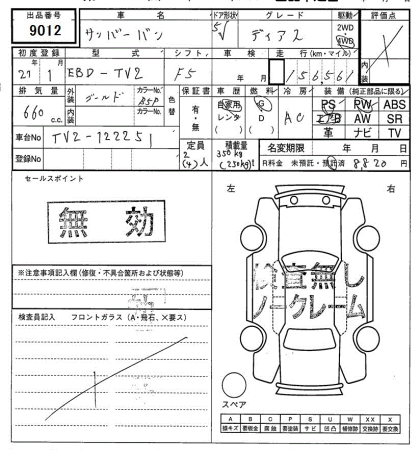 出品番号 車名 ドア形状 グレード 駆動 評価点
9012 サンバーバン 5 ディアス 2WD・4WD
初度登録 型式 シフト 車検 走行(km・マイル) 内装
21 1 EBD-TV2 F5 年 月 156561
排気量 外装 カラーNo. 色替 保証書 車歴 燃料 冷房 装備(純正部品に限る)
660 c.c. ゴールド 内装 カラーNo. 有・無 自家用 レンタ G D AC PS PW ABS
エアB AW SR
革 ナビ TV
車台No TV2-122251 定員 2(4)人 積載量 350kg (250kg) 名変期限 年 月 日
登録No R料金 未預託・預託済 8,820 円
セールスポイント
無効
左 右
※注意事項記入欄(修復・不具合箇所および状態等)
検査無し
ノークレーム
検査員記入 フロントガラス(A・飛石、×要ス)
スペア
A B C P S U W XX X
線キズ 要板金 腐蝕 要塗装 サビ 凹凸 補修跡 交換跡 要交換